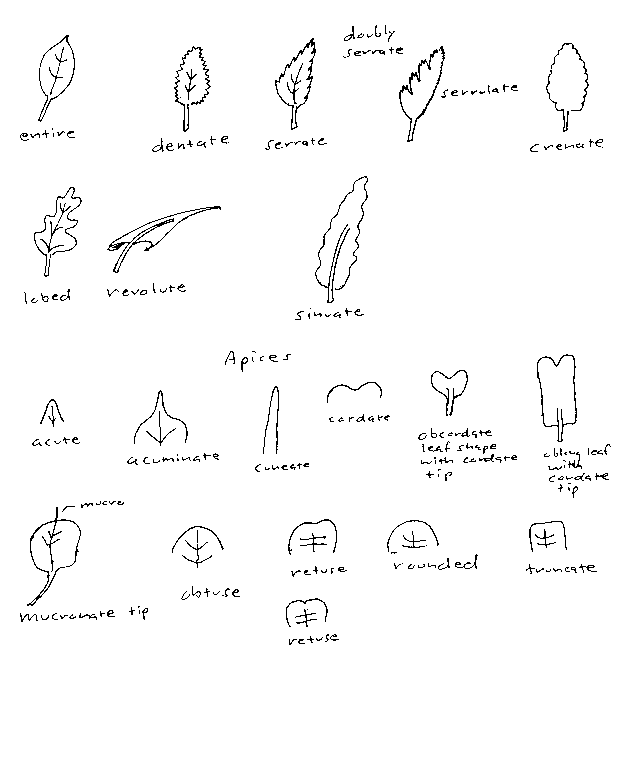 doubly
serrate
entire
dentate
serrate
serrulate
crenate
lobed
revolute
sinuate
Apices
acute
acuminate
cuneate
cordate
obcordate
leaf shape
with cordate
tip
oblong leaf
with
cordate
tip
mucro
mucronate tip
obtuse
retuse
rounded
truncate
retuse